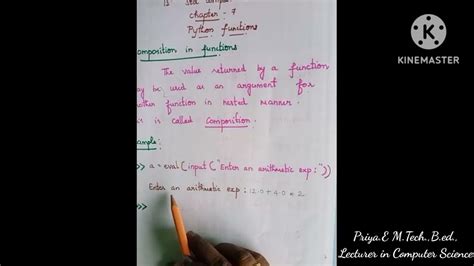 Std
chapter - 7
Python functions
omposition in functions
The value returned by a function
ay be used as an argument for
other function in nested manner.
is is called composition.
ample:
>> a = eval(input("Enter an arithmetic exp:"))
Enter an arithmetic exp: 12.0 + 4.0 * 2
>>
KINEMASTER
Priya.E M.Tech.,B.ed.,
Lecturer in Computer Science